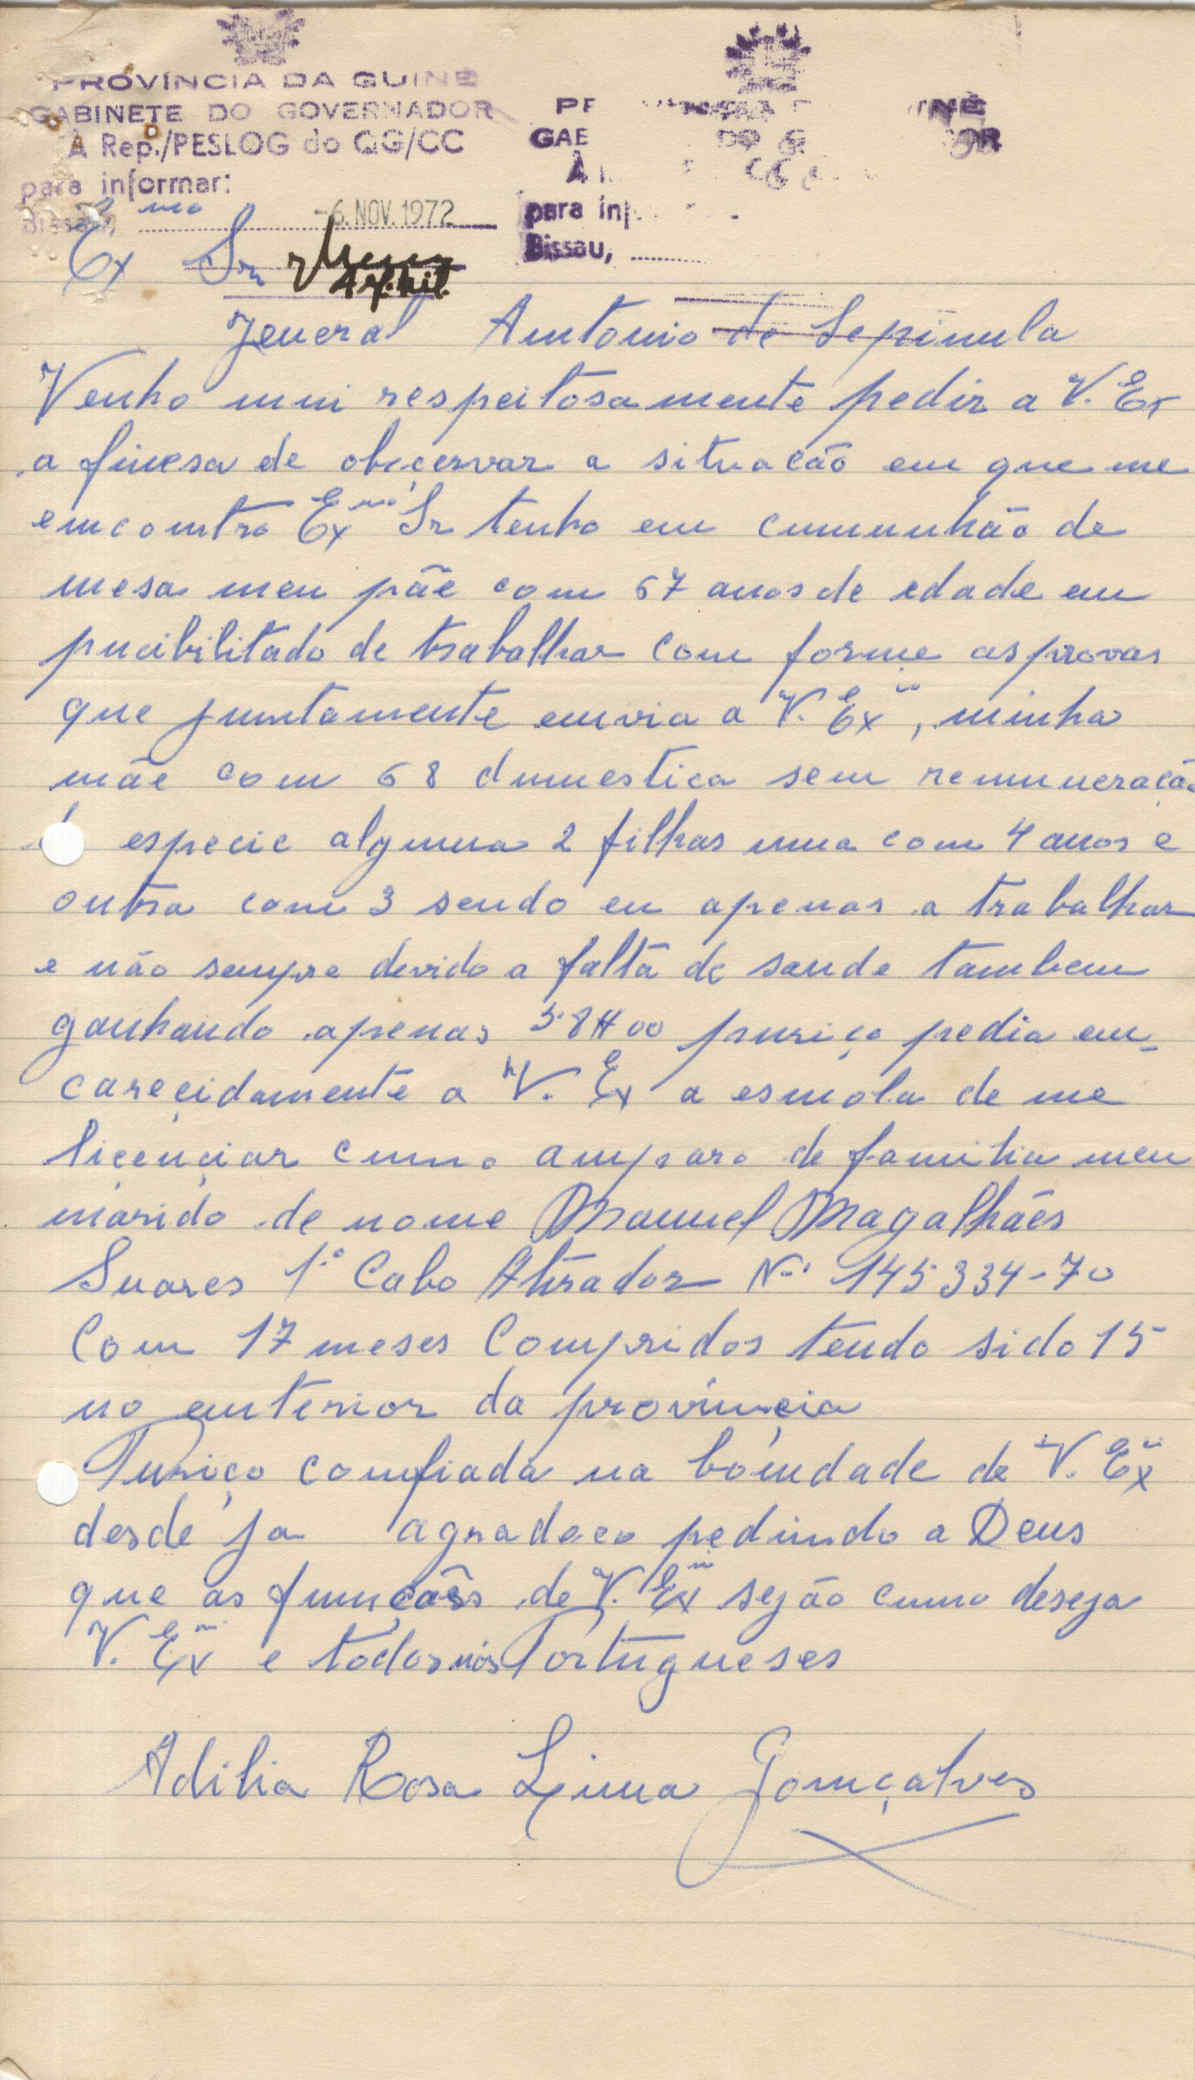 PROVÍNCIA DA GUINÉ
GABINETE DO GOVERNADOR
À Rep./PESLOG do QG/CC
para informar:
Bissau, -6. NOV. 1972
para inf
Bissau,
Ex mo Sr
Jeneral Antonio de Sepinula
Venho mui respeitosamente pedir a V. Ex
a finesa de obcervar a situacão em que me
emcomtro Exmo Sr tenho em cumunhão de
mesa meu pãe com 67 anos de edade em
pucibilitado de trabalhar com forme as provas
que juntamente emvia a V. Exª, minha
mãe com 68 dumestica sem remuneração
especie alguma 2 filhas uma com 4 anos e
outra com 3 sendo eu apenas a trabalhar
e não sempre devido a falta de saude tambem
ganhando apenas 38$00 puriço pedia em-
careçidamente a V. Ex a esmola de me
liçençiar cumo amparo de familia meu
marido de nome Manuel Magalhães
Suares 1.º Cabo Atirador N.º 145334-70
Com 17 meses Compridos tendo sido 15
no enterior da provinçia
Puriço comfiada na bomdade de V. Exª
desde ja agradeco pedindo a Deus
que as funcoês de V. Exª sejão cumo deseja
V. Exª e todos nós Portugueses
Adilia Rosa Lima Gomçalves